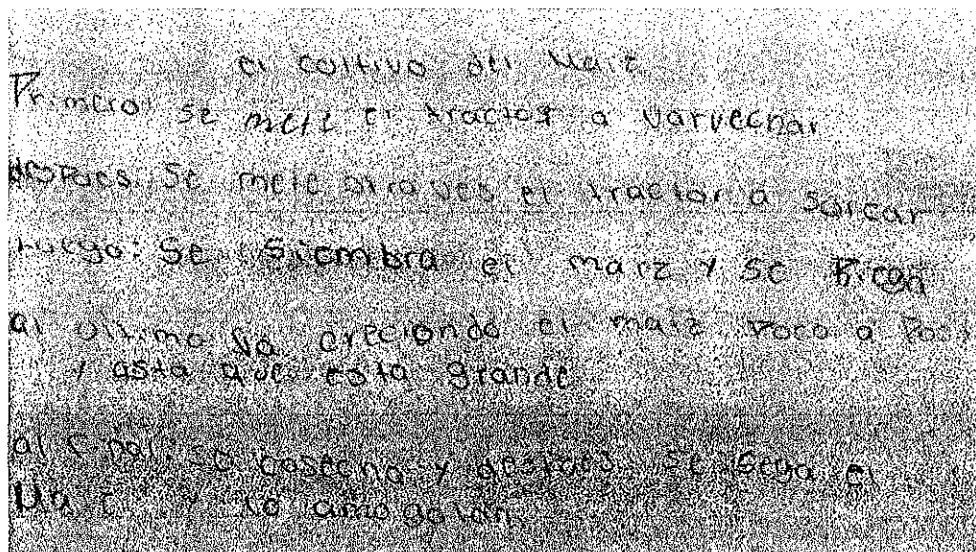 el coltivo del Maiz
Primero se mete el tractor a varvechar
despues se mete otra ves el tractor a sorcar
Luego: se siembra el maiz y se
al ultimo va creciendo el maiz poco a
y asta que esta grande
al final: se cosecha y despues se sega el
lo